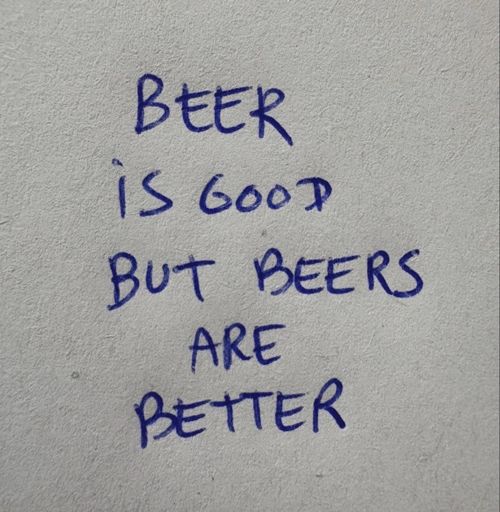 BEER
iS GOOD
BUT BEERS
ARE
BETTER